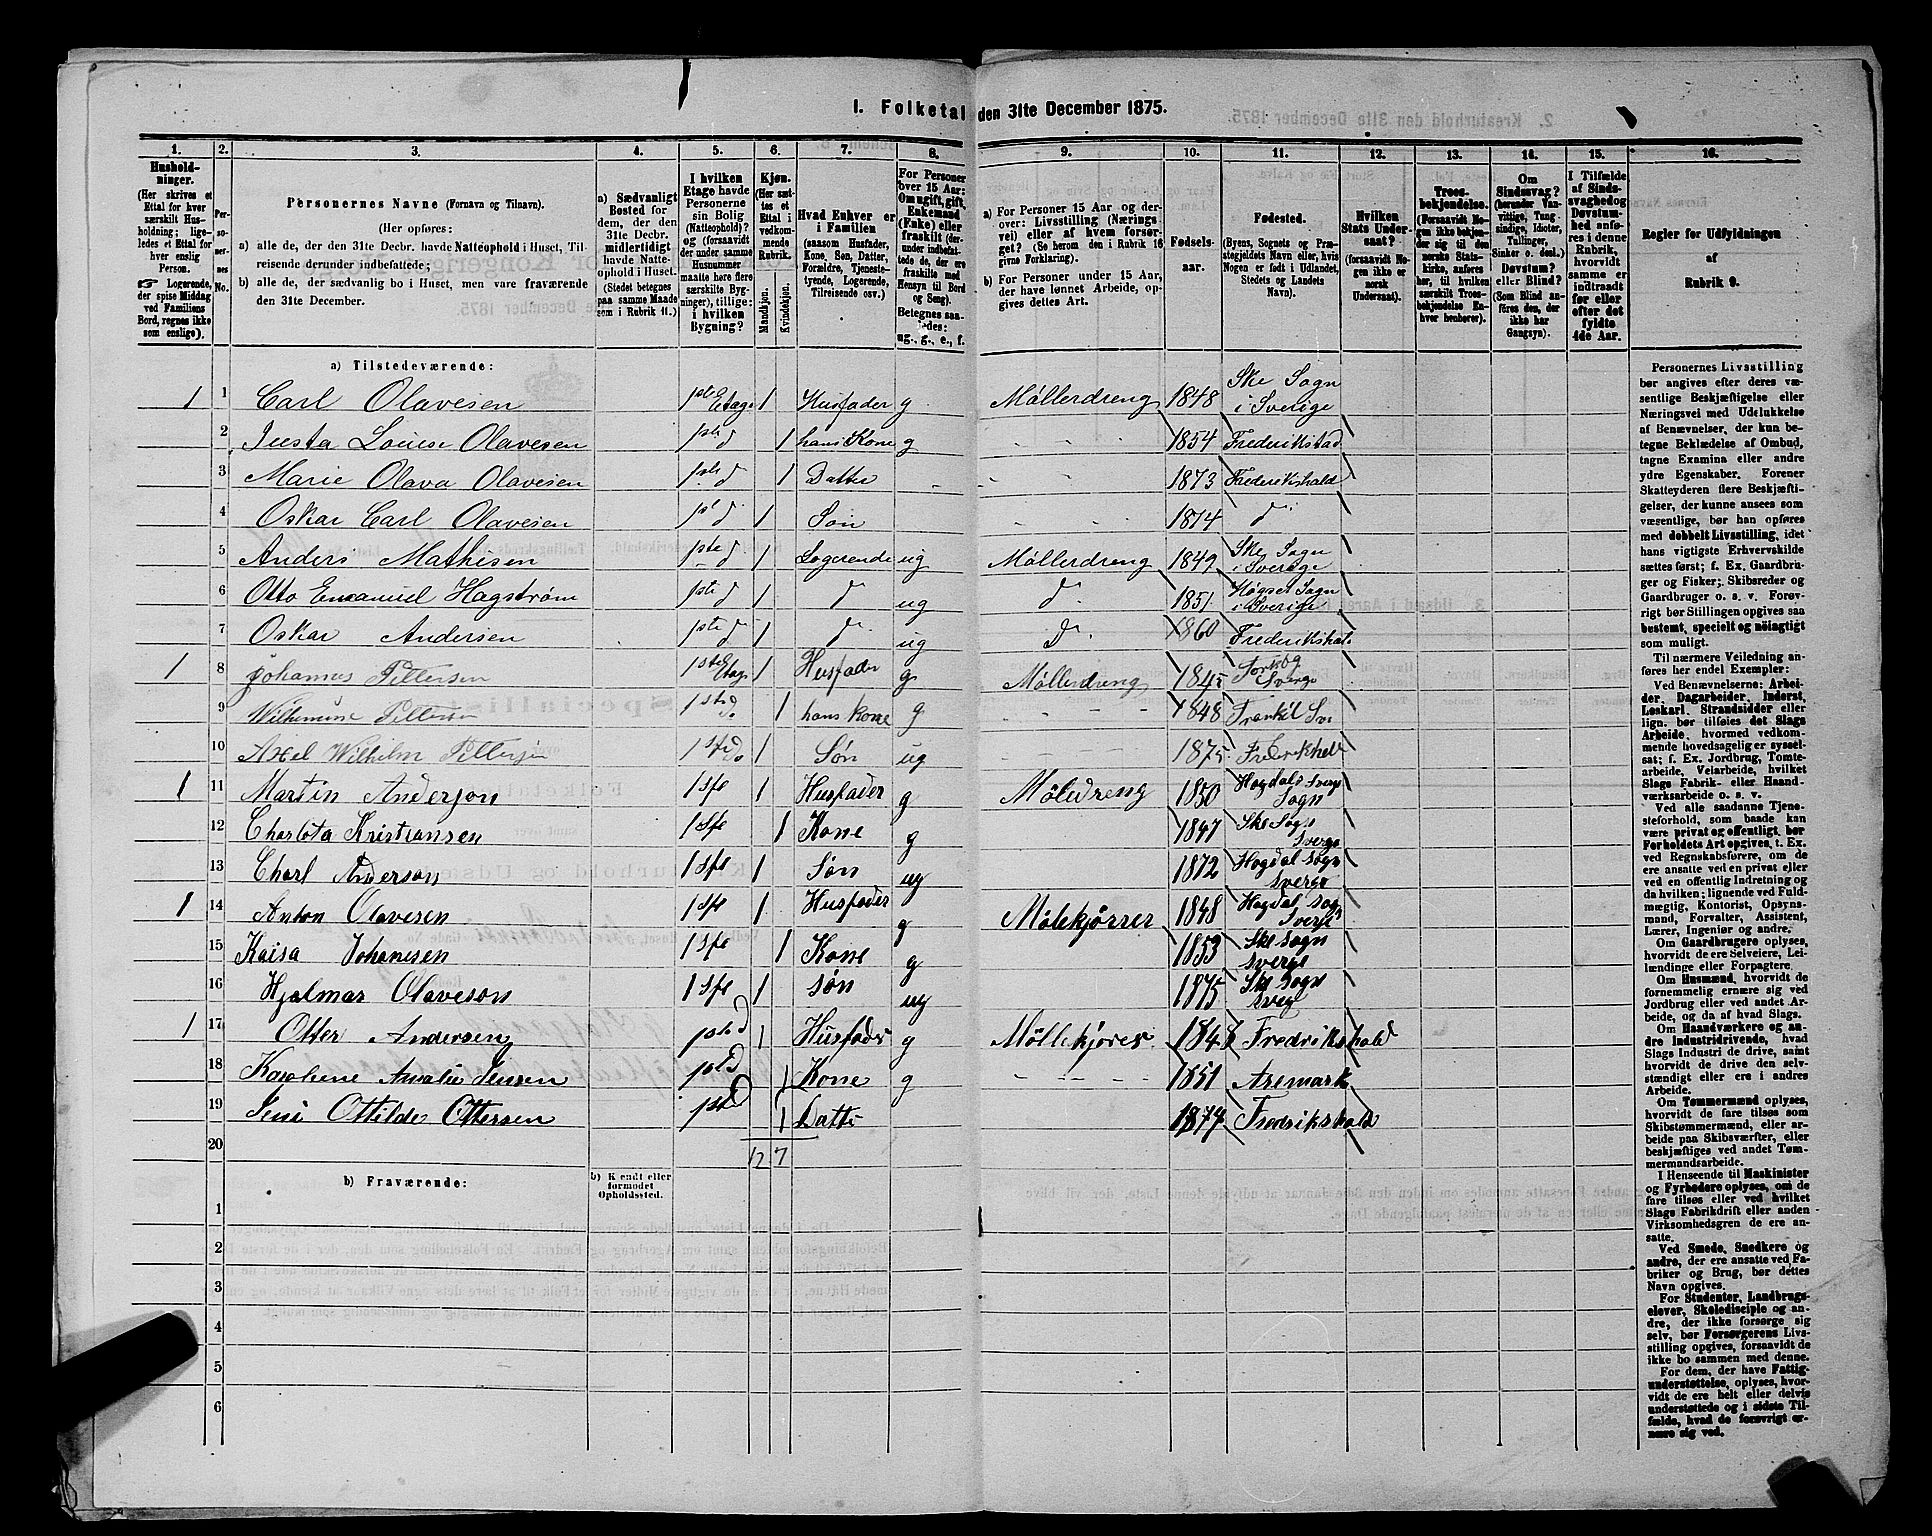 I. Folketal den 31te December 1875.
1. 2. 3. 4. 5. 6. 7. 8. 9. 10. 11. 12. 13. 14. 15. 16.
Husholdninger.
(Her skrives et Ettal for hver særskilt Husholdning; ligeledes et Ettal for hver enslig Person.
☞ Logerende, der spise Middag ved Familiens Bord, regnes ikke som enslige).
Personernes No.
Personernes Navne (Fornavn og Tilnavn).
(Her opføres:
a) alle de, der den 31te Decbr. havde Natteophold i Huset, Tilreisende derunder indbefattede;
b) alle de, der sædvanlig bo i Huset, men vare fraværende den 31te December.
a) Sædvanligt Bosted for dem, der den 31te Decbr. midlertidigt havde Natteophold i Huset. (Stedet betegnes paa samme Maade som i Rubrik 11.)
I hvilken Etage havde Personerne sin Bolig (Natteophold)? og (forsaavidt der under samme Husnummer maatte høre flere særskilte Bygninger), tillige: i hvilken Bygning?
Kjøn.
(Her sættes et Ettal i vedkommende Rubrik.
Mandkjøn. Kvindekjøn.
Hvad Enhver er i Familien
(saasom Husfader, Kone, Søn, Datter, Forældre, Tjenestetyende, Logerende, Tilreisende osv.)
For Personer over 15 Aar: Om ugift, gift, Enkemand (Enke) eller fraskilt (derunder indbefattede de, der ere fraskilte med Hensyn til Bord og Seng).
Betegnes saaledes: ug., g., e., f.
a) For Personer 15 Aar og derover: Livsstilling (Næringsvei) eller af hvem forsørget? (Se herom den i Rubrik 16 givne Forklaring).
b) For Personer under 15 Aar, der have lønnet Arbeide, opgives dettes Art.
Fødselsaar.
Fødested.
(Byens, Sognets og Præstegjeldets Navn eller, hvis Nogen er født i Udlandet, Stedets og Landets Navn).
Hvilken Stats Undersaat?
(forsaavidt Nogen ikke er norsk Undersaat).
Troesbekjendelse.
(Forsaavidt Nogen ikke bekjender sig til den norske Statskirke, anføres her, til hvilket særskilt Troesbekjendelse Enhver henhører).
Om Sindssvag? (herunder Vanvittige, Tungsindige, Idioter, Tullinger, Sinker o. desl.) Døvstum? eller Blind?
(Som Blind anføres den, der ikke har Gangsyn).
I Tilfælde af Sindssvaghed og Døvstumhed anføres i denne Rubrik, hvorvidt samme er indtraadt før eller efter det fyldte 4de Aar.
Regler for Udfyldningen af Rubrik 9.
a) Tilstedeværende:
1 1 Carl Olavesen 1ste Etage 1 Husfader g Møllerdreng 1848 Ske Sogn i Sverige
2 Justa Louise Olavesen 1ste d 1 hans Kone g - - 1854 Frederikstad
3 Marie Olava Olavesen 1ste d 1 Datter - - - 1873 Frederikshald
4 Oskar Carl Olavesen 1st d 1 Søn - - 1874 d
5 Anders Mathisen 1ste d 1 Logerende ug Møllerdreng 1849 Ske Sogn i Sverige
6 Otto Emanuel Hagstrøm 1ste d 1 d ug d. 1851 Høgset Sogn i Sverige
7 Oskar Andersen 1ste d 1 d. ug d. 1860
1 8 Johannes Pettersen 1ste Etag 1 Husfader g Møllerdreng 1845 Sverge
9 Wilhemine Pettersen 1ste do 1 hans kone g - - - 1848
10 Axel Wilhelm Pettersen 1ste do 1 Søn ug - - - 1875
1 11 Martin Anderson 1 ste 1 Husfader g Møledreng 1850 Hogdals Sverge Sogn
12 Charlota Kristiansen 1 ste 1 Kone g 1847 Ske Sogn Sverge
13 Charl Anderson 1 ste 1 Søn ug 1872 Hogdal sogn sverge
1 14 Anton Olavesen 1 ste 1 Husfader g Mølekjørrer 1848 Hogdal sogn Sverge
15 Kaisa Johanesen 1 ste 1 Kone g 1853 Ske sogn sverge
16 Hjalmar Olaveson 1 ste 1 søn ug 1875 Ske sogn sverg
1 17 Otter Andersen 1ste d 1 Husfader g Møllekjører 1848 Fredrikshald
18 Karolene Amalie Jensen 1ste d 1 Kone g - - - 1851 Aremark
19 Jeni Ottilde Ottersen 1ste d 1 Datte 1874 Fredrikshald
20
12 7
b) Fraværende:
b) Kjendt eller formodet Opholdssted.
1
2
3
4
5
6
Personernes Livsstilling bør angives efter deres væsentlige Beskjæftigelse eller Næringsvei med Udelukkelse af Benævnelser, der kun betegne Beklædelse af Ombud, tagne Examina eller andre ydre Egenskaber. Forener Skatteyderen flere Beskjæftigelser, der kunne ansees som væsentlige, bør han opføres med dobbelt Livsstilling, idet hans vigtigste Erhvervskilde sættes først; f. Ex. Gaardbruger og Fisker; Skibsreder og Gaardbruger o. s. v. Forøvrigt bør Stillingen opgives saa bestemt, specielt og nøiagtigt som muligt.
Til nærmere Veiledning anføres her endel Exempler:
Ved Benævnelserne: Arbeider, Dagarbeider, Inderst, Løskarl, Strandsidder eller lign. bør tilføies det Slags Arbeide, hvormed vedkommende hovedsagelig er sysselsat; f. Ex. Jordbrug, Tomtearbeide, Veiarbeide, hvilket Slags Fabrik- eller Haandværksarbeide o. s. v.
Ved alle saadanne Tjenesteforhold, som baade kan være privat og offentligt, bør Forholdets Art opgives, t. Ex. ved Regnskabsførere, om de ere ansatte ved en privat eller ved en offentlig Indretning og da hvilken; lignende ved Fuldmægtig, Kontorist, Opsynsmand, Forvalter, Assistent, Lærer, Ingeniør og andre.
Om Gaardbrugere oplyses, hvorvidt de ere Selveiere, Leilændinge eller Forpagtere.
Om Husmænd, hvorvidt de fornemmelig ernære sig ved Jordbrug eller ved andet Arbeide, og da af hvad Slags.
Om Haandværkere og andre Industridrivende, hvad Slags Industri de drive, samt hvorvidt de drive den selvstændigt eller ere i andres Arbeide.
Om Tømmermænd oplyses, hvorvidt de fare tilsøs som Skibstømmermænd, eller arbeide paa Skibsværfter, eller beskjæftiges ved andet Tømmermandsarbeide.
I Henseende til Maskinister og Fyrbødere oplyses, om de fare tilsøs eller ved hvilket Slags Fabrikdrift eller anden Virksomhedsgren de ere ansatte.
Ved Smede, Snedkere og andre, der ere ansatte ved Fabriker og Brug, bør dettes Navn opgives.
For Studenter, Landbrugselever, Skoledisciple og andre, der ikke forsørge sig selv, bør Forsørgerens Livsstilling opgives, forsaavidt de ikke bo sammen med denne.
For dem, der have Fattigunderstøttelse, oplyses, hvorvidt de ere helt eller delvis understøttede og i sidste Tilfælde, hvad de forøvrigt ernære sig ved.